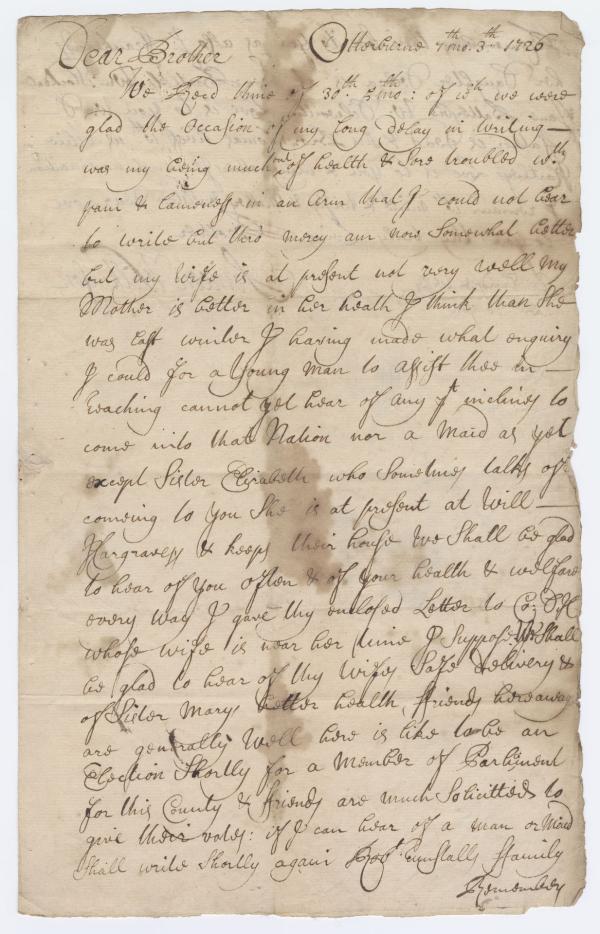 Dear Brother Otterburne 7th mo: 3th 1726
We Recd thine of 30th 5th mo: of wch we were
glad the Occasion of my long Delay in Writing —
was my being much out of health & Sore troubled wth
pain & Lameness in an Arm that I could not bear
to write but thro mercy am now Somewhat better
but my Wife is at present not very well My
Mother is better in her heath I think than She
was last winter I having made what enquiry
I could for a Young Man to assist thee in —
Teaching cannot yet hear of any yt inclines to
come into that Nation nor a Maid as yet
except Sister Elizabeth who Sometimes talks of
comeing to you She is at present at Will —
Hargraves & keeps their house We Shall be glad
to hear of you often & of your health & wellfare
every way I gave thy enclosed Letter to Co:
whose wife is near her time I Suppose We Shall
be glad to hear of thy Wifes Safe delivery &
of Sister Marys better health, friends hereaway
are generally Well here is like to be an
Election Shortly for a Member of Parliment
for this County & friends are much Solicitted to
give their votes: if I can hear of a man or Maid
Shall write Shortly again Robt Tunstalls ffamily
Remember